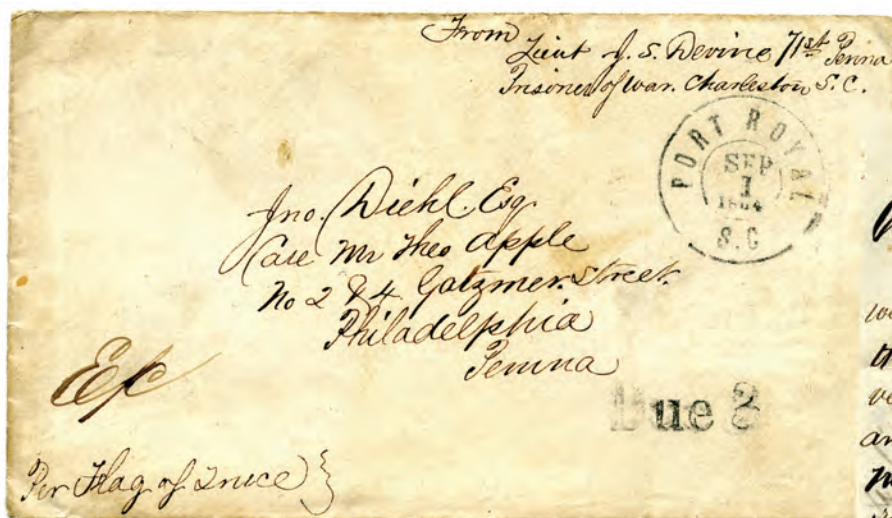 From
Lieut J. S. Devine 71st Penna
Prisoner of War. Charleston S. C.
PORT ROYAL
SEP
1
1864
S.C
Jno. Diehl Esq.
Care Mr Theo Apple
No 2 & 4 Gatzmer Street.
Philadelphia
Penna
Due 3
Per Flag of Truce